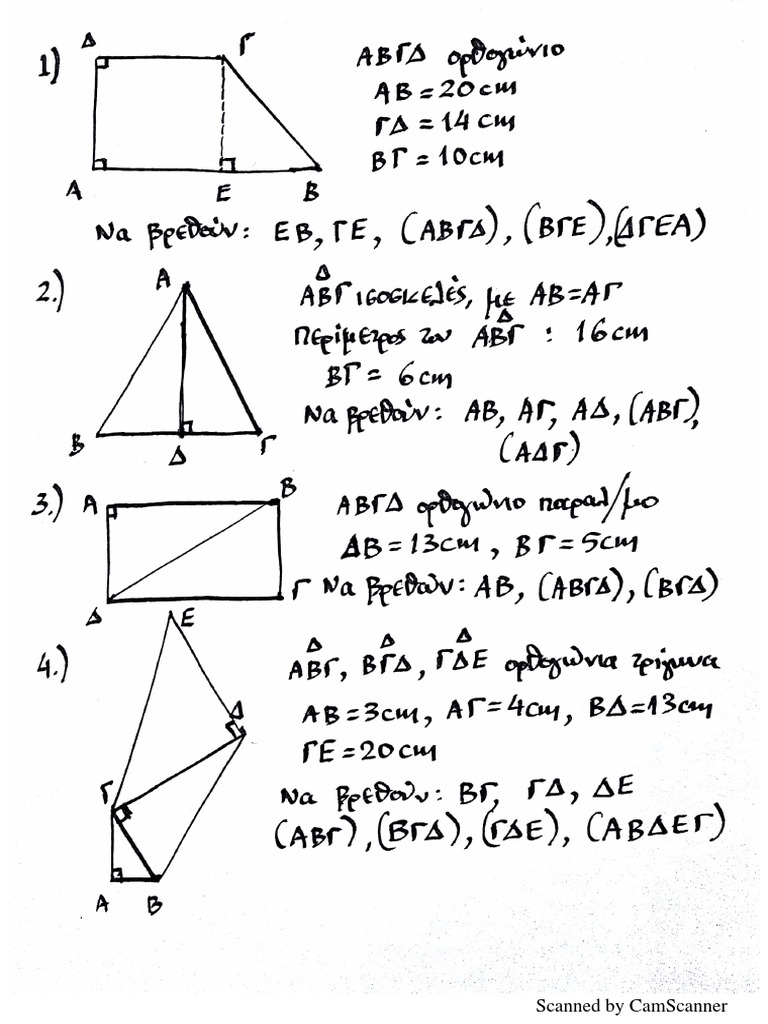 1)
Δ Γ
Α Ε Β
ΑΒΓΔ ορθογώνιο
ΑΒ = 20 cm
ΓΔ = 14 cm
ΒΓ = 10 cm
Να βρεθούν: ΕΒ, ΓΕ, (ΑΒΓΔ), (ΒΓΕ), (ΔΓΕΑ)
2.)
Α
Β Δ Γ
Δ
ΑΒΓ ισοσκελές, με ΑΒ=ΑΓ
Δ
Περίμετρος του ΑΒΓ : 16 cm
ΒΓ = 6 cm
Να βρεθούν: ΑΒ, ΑΓ, ΑΔ, (ΑΒΓ),
(ΑΔΓ)
3.)
Α Β
Δ Γ
ΑΒΓΔ ορθογώνιο παραλ/μο
ΔΒ = 13 cm, ΒΓ = 5 cm
Να βρεθούν: ΑΒ, (ΑΒΓΔ), (ΒΓΔ)
4.)
Ε
Δ
Γ
Α Β
Δ Δ Δ
ΑΒΓ, ΒΓΔ, ΓΔΕ ορθογώνια τρίγωνα
ΑΒ = 3 cm, ΑΓ = 4 cm, ΒΔ = 13 cm
ΓΕ = 20 cm
Να βρεθούν: ΒΓ, ΓΔ, ΔΕ
(ΑΒΓ), (ΒΓΔ), (ΓΔΕ), (ΑΒΔΕΓ)
Scanned by CamScanner